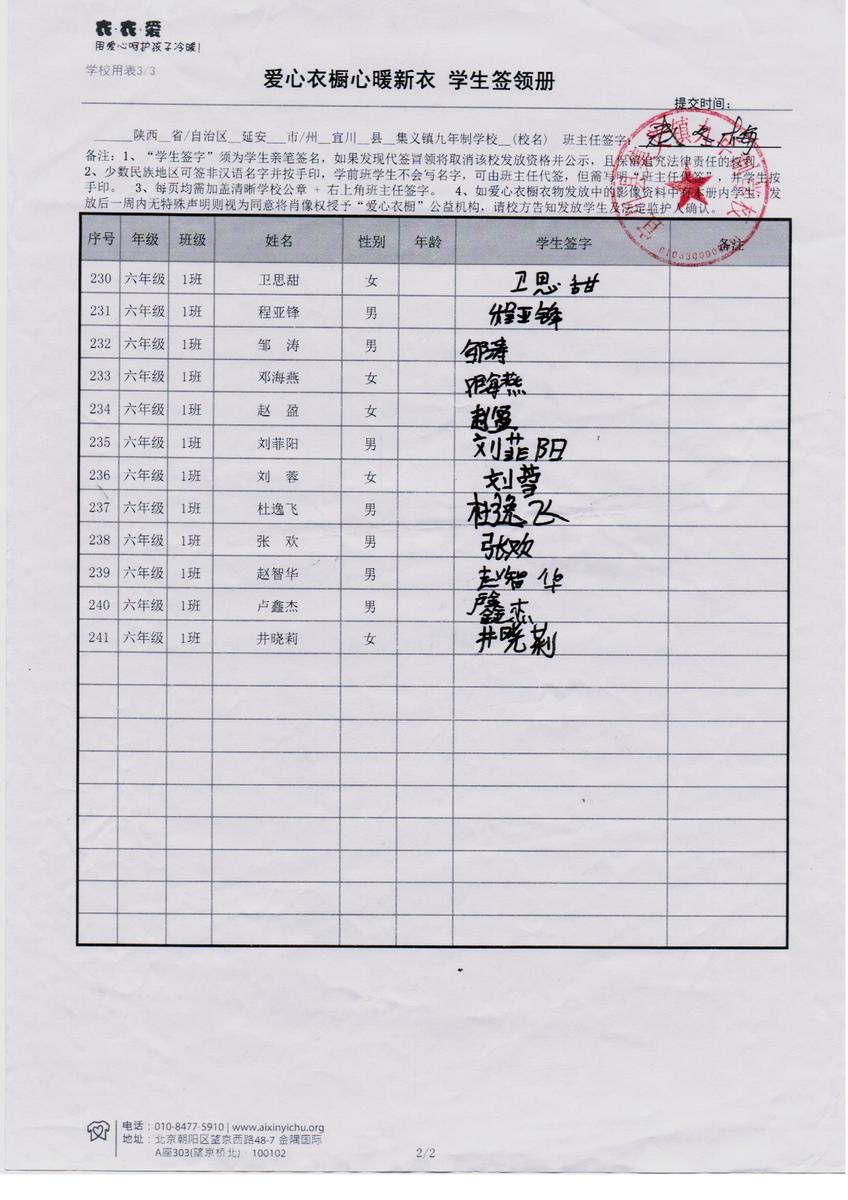 衣·衣·爱
用爱心呵护孩子冷暖！
学校用表3/3
爱心衣橱心暖新衣 学生签领册
提交时间：
______陕西__省/自治区__延安___市/州__宜川__县__集义镇九年制学校__(校名) 班主任签字：
备注：1、“学生签字”须为学生亲笔签名，如果发现代签冒领将取消该校发放资格并公示，且保留追究法律责任的权利
2、少数民族地区可签非汉语名字并按手印，学前班学生不会写名字，可由班主任代签，但需写明“班主任代签”，并学生按
手印。 3、每页均需加盖清晰学校公章 + 右上角班主任签字。 4、如爱心衣橱衣物发放中的影像资料中有本册内学生，发
放后一周内无特殊声明则视为同意将肖像权授予“爱心衣橱”公益机构，请校方告知发放学生及法定监护人确认。
序号 年级 班级 姓名 性别 年龄 学生签字 备注
230 六年级 1班 卫思甜 女 卫思甜
231 六年级 1班 程亚锋 男 程亚锋
232 六年级 1班 邹 涛 男 邹涛
233 六年级 1班 邓海燕 女 邓海燕
234 六年级 1班 赵 盈 女 赵盈
235 六年级 1班 刘菲阳 男 刘菲阳
236 六年级 1班 刘 蓉 女 刘蓉
237 六年级 1班 杜逸飞 男 杜逸飞
238 六年级 1班 张 欢 男 张欢
239 六年级 1班 赵智华 男 赵智华
240 六年级 1班 卢鑫杰 男 卢鑫杰
241 六年级 1班 井晓莉 女 井晓莉
电话：010-8477-5910 | www.aixinyichu.org
地址：北京朝阳区望京西路48-7 金隅国际
A座303(望京桥北) · 100102
2/2